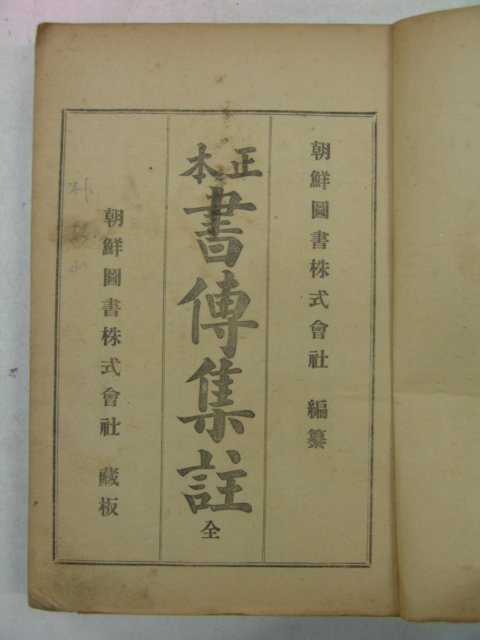 朝鮮圖書株式會社 編纂
正本
書傳集註 全
朝鮮圖書株式會社 藏板
朴
山